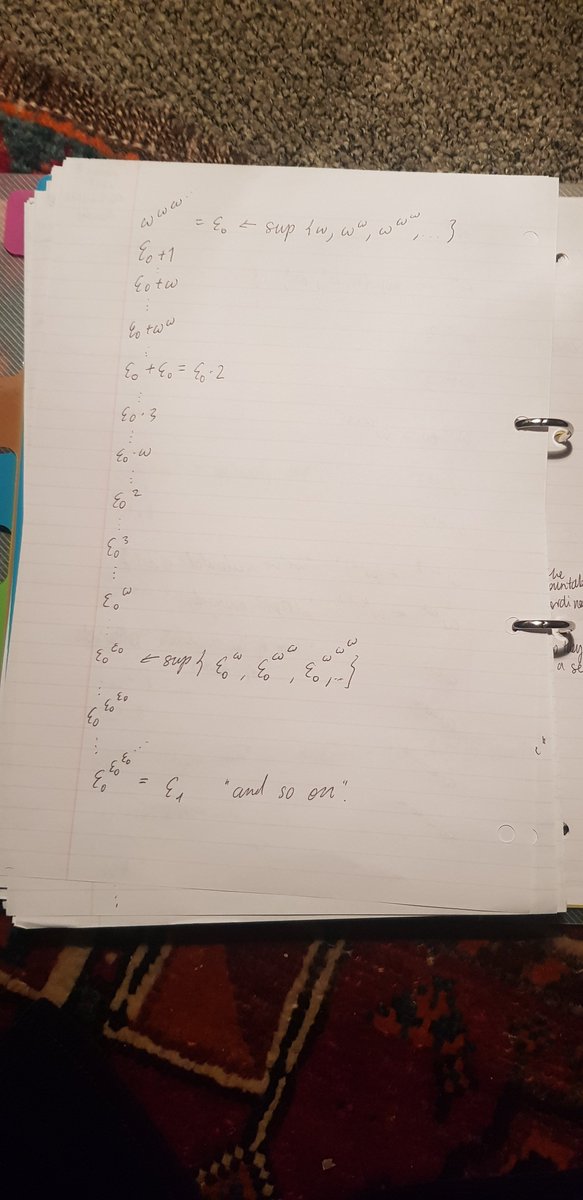 ω^ω^ω^⋰ = ε₀ ← sup {ω, ω^ω, ω^ω^ω, ...}
ε₀+1
⋮
ε₀+ω
⋮
ε₀+ω^ω
⋮
ε₀+ε₀ = ε₀·2
⋮
ε₀·3
⋮
ε₀·ω
⋮
ε₀²
⋮
ε₀³
⋮
ε₀^ω
⋮
ε₀^ε₀ → sup { ε₀^ω, ε₀^ω^ω, ε₀^ω^ω^ω, ...}
⋮
ε₀^ε₀^ε₀
⋮
ε₀^ε₀^ε₀^⋰ = ε₁ "and so on".
⋮
a se